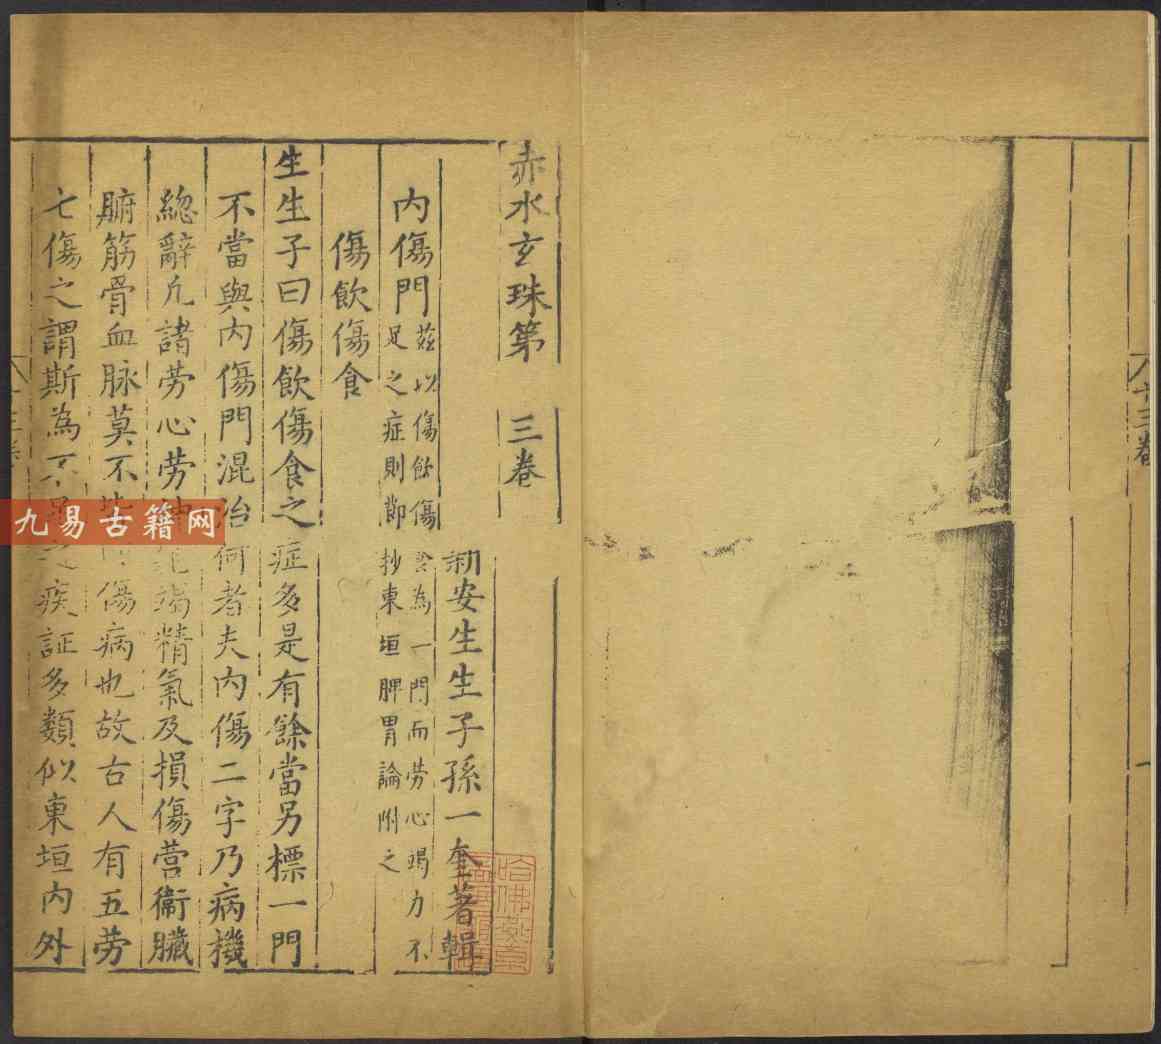 赤水玄珠第　三卷
新安生生子孫一奎著輯
內傷門
茲以傷飲傷食為一門而勞心竭力不
足之症則節抄東垣脾胃論附之
傷飲傷食
生生子曰傷飲傷食之症多是有餘當另標一門
不當與內傷門混治何者夫內傷二字乃病機
總辭凡諸勞心勞竭精氣及損傷營衞臟
腑筋骨血脉莫不傷病也故古人有五勞
七傷之謂斯為不疾証多類似東垣內外
十三卷
一
哈佛燕京
九易古籍网